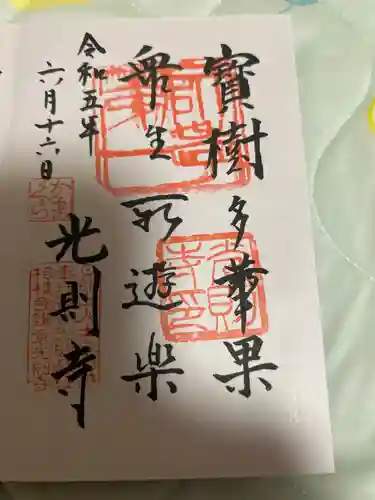 寶樹多華果
衆生所遊樂
令和五年
六月十六日
光則寺
光則寺印